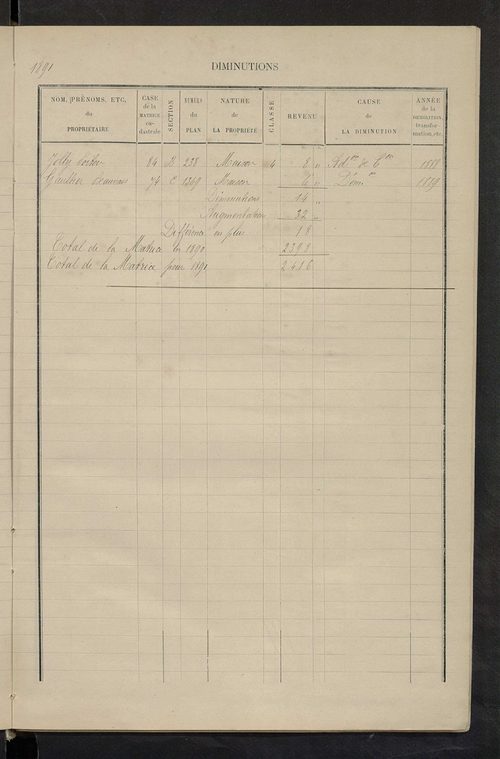 1891
DIMINUTIONS
NOM, PRÉNOMS, ETC. du PROPRIÉTAIRE
CASE de la MATRICE cadastrale
SECTION
NUMÉRO du PLAN
NATURE de LA PROPRIÉTÉ
CLASSE
REVENU
CAUSE de LA DIMINUTION
ANNÉE de la DÉMOLITION, transformation, etc.
Jolly 84 238 Maison 4 8 " 1888
Gaultier 74 C 1369 Maison 6 " Dém. on 1889
Diminutions 14 "
Augmentation 32 "
Différence en plus 18
Total de la Matrice en 1890 2398
Total de la Matrice pour 1891 2416